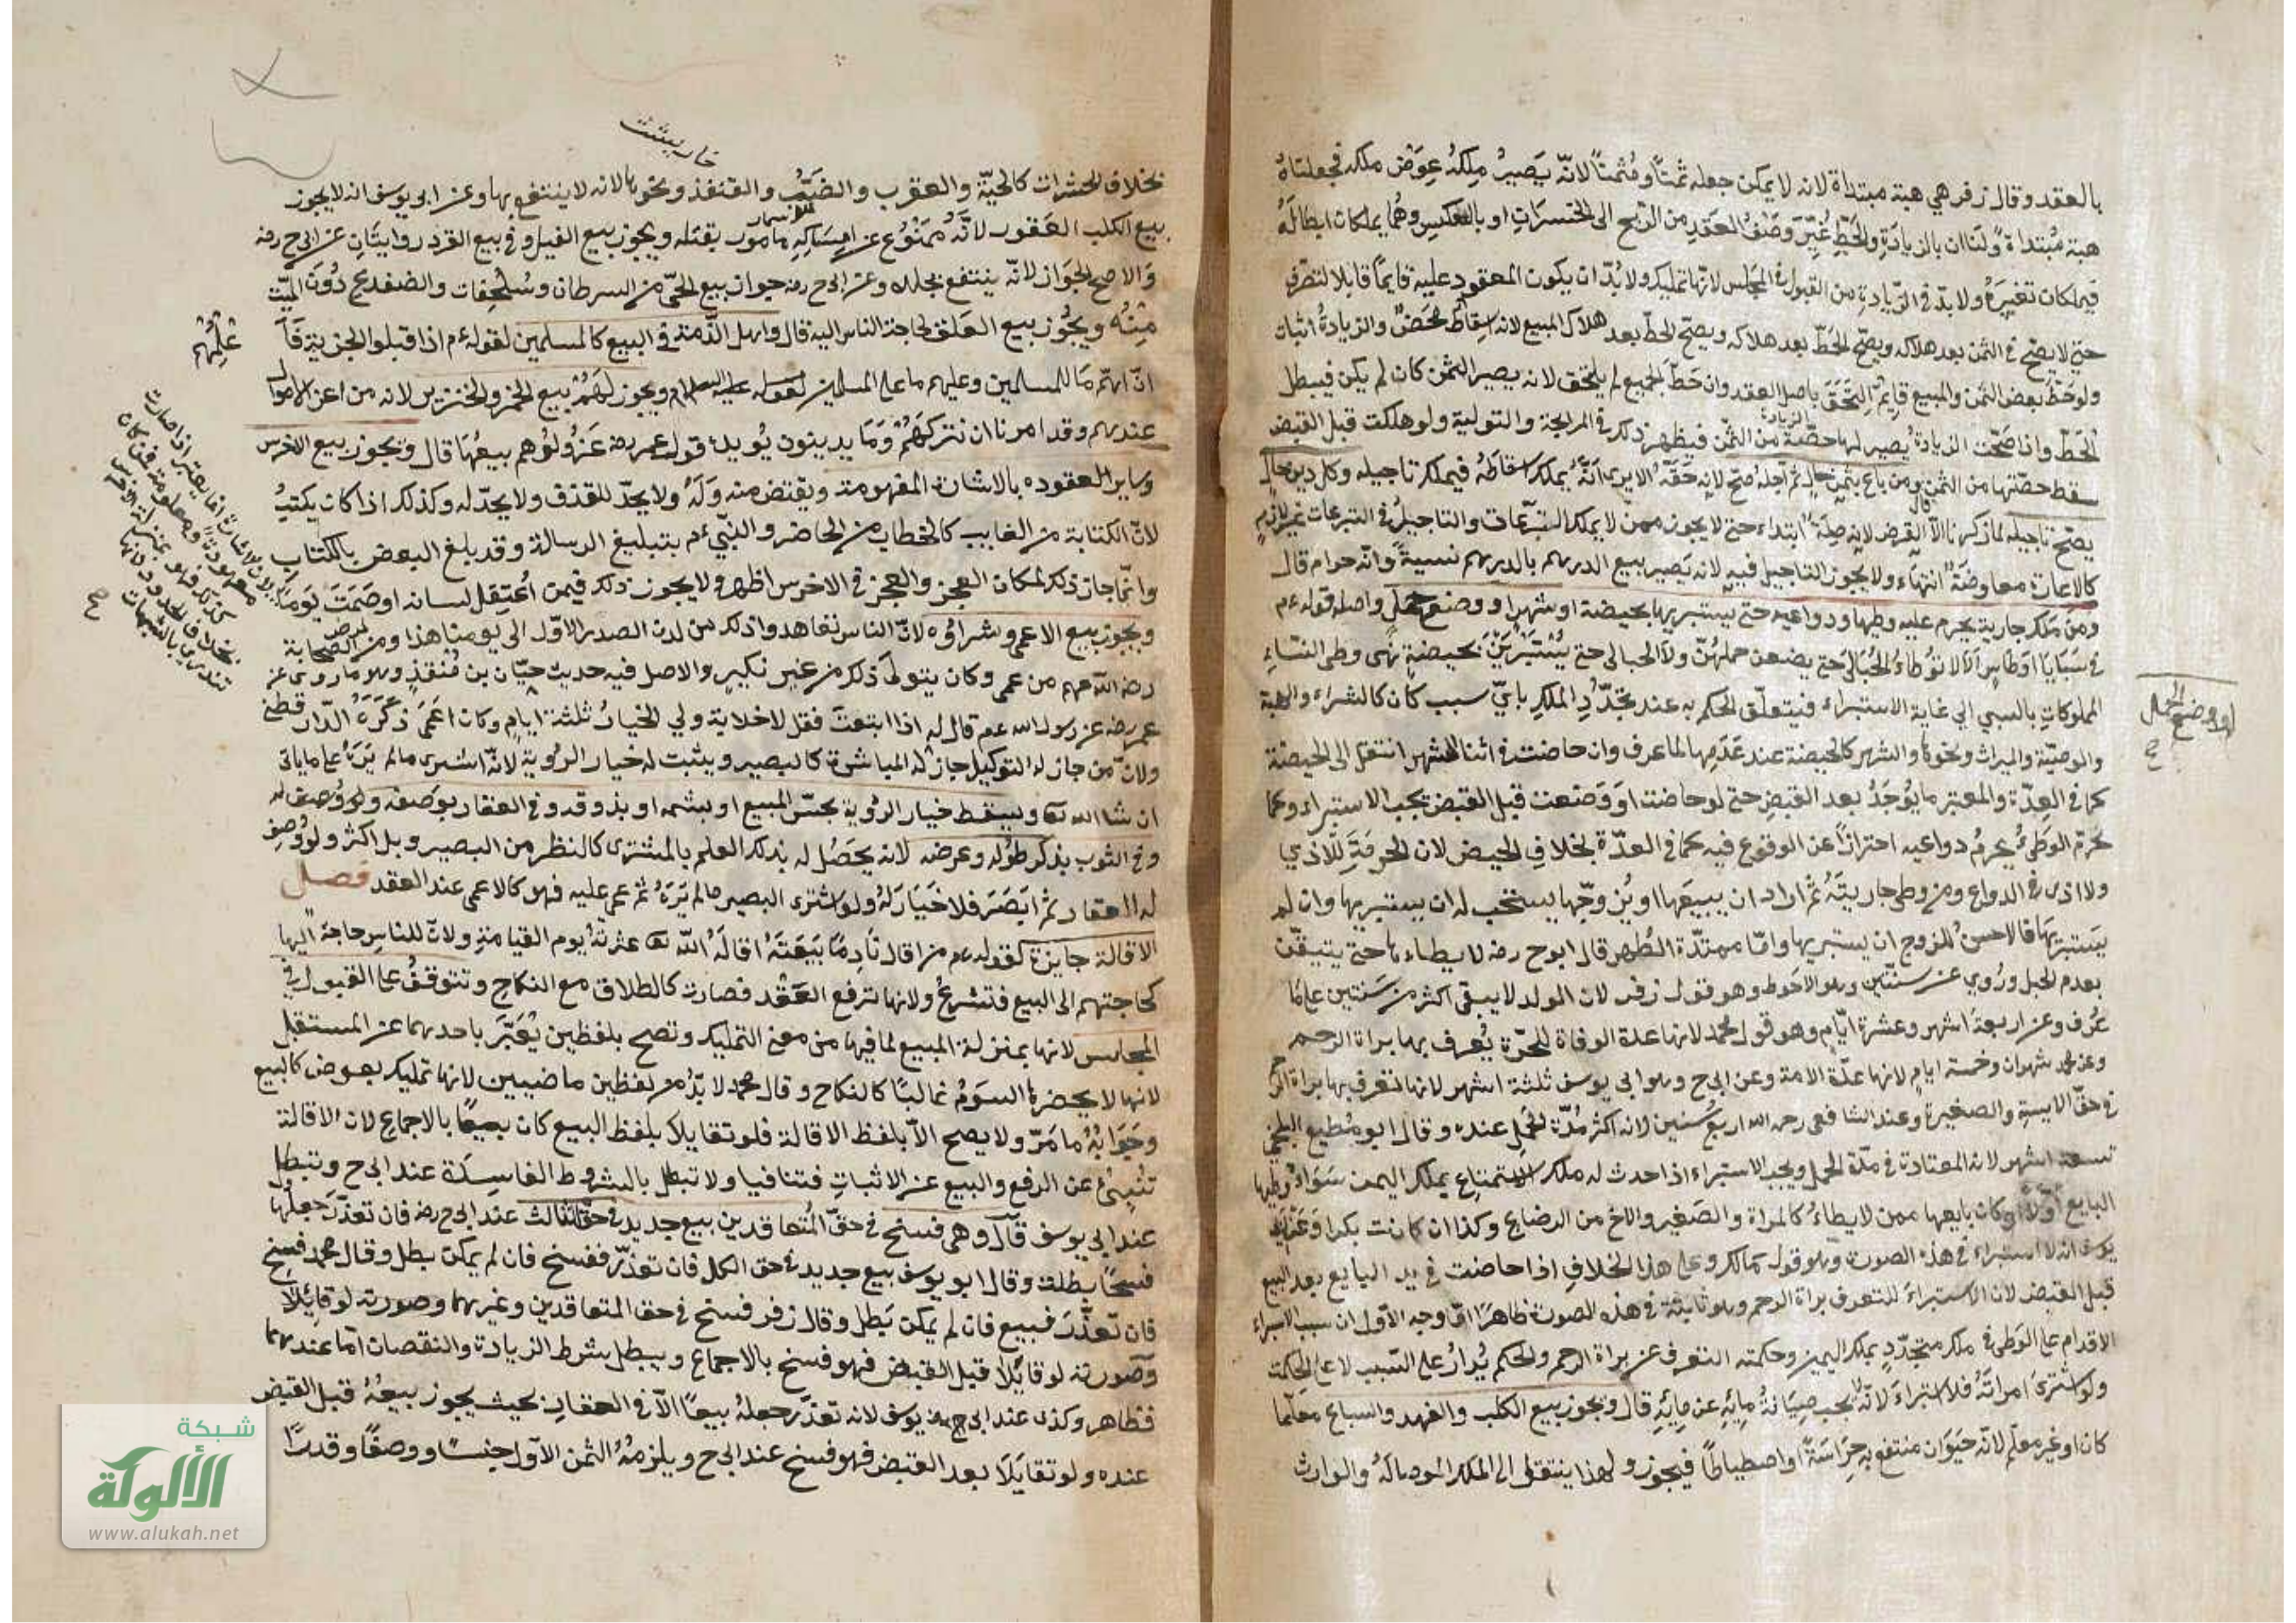 بالعقد وقال زفر هي هبة مبتداة لانه لا يمكن جعله ثمنًا ومُثمنًا لانّه يَصيرُ مِلكُهُ عِوَضَ ملكه فجعلناهُ
هبة مُبْتداة ولنا ان بالزيادَةِ والحَطِّ غُيِّرَ وَصْفُ العَقدِ من الرّبح الى الخسرَانِ او بالعكسِ وهُما يملكان ابطالَهُ
فيملكان تغييرَهُ ولا بدّ في الزّيادةِ من القبول في المجلس لانّها تمليك ولا بُدّ ان يكون المعقود عليه قايمًا قابلا لتصرّف
حتى لا يصحّ في الثمن بعد هلاكه ويصحّ الحَطّ بعد هلاكه ويصحّ الحطّ بعد هلاك المبيع لانه اسقاطٌ مَحضٌ والزيادةُ اثبات
ولو حَطّ بعض الثمن والمبيع قايمٌ التَحَقَ باصل العقد وان حَطّ الجميع لم يلتحق لانه يصير الثمن كان لم يكن فيبطل
الحطّ واذا صَحّت الزيادةُ يصير لها حصّة من الثّمن فيظهر ذلك في المرابحة والتولية ولو هلكت قبل القبض
سقط حصّتها من الثمن ومن باع بثمنٍ حالٍ ثم اجّله صحّ لانه حَقّهُ الا يرى انّهُ يملك اسقاطَهُ فيملك تاجيله وكل دين حالٍ
يصحّ تاجيله لما ذكرنا قال الّا القرض لانه صِلةٌ ابتداء حتى لا يجوز ممن لا يملك التبرّعات والتاجيلُ في التبرعات غير لازمٍ
كالاعارة معاوضَةٌ انتهاء ولا يجوز التاجيل فيه لانه يَصير بيع الدرهم بالدرهم نسيةً وانّه حرام قال
ومن ملك جارية يحرم عليه وطيها ودواعيه حتى يستبريها بحيضة او شهرٍ او وضع حَملٍ واصله قوله عم
في سَبَايَا اوطاسٍ اَلَا لا تُوطاءُ الحُبالَى حتى يضعن حملهُنّ ولا الحيالى حتى يُسْتَبرَيْنَ بحيضةٍ نهى وطى النّساءِ
المملوكاتِ بالسبي الى غاية الاستبراء فيتعلّق الحكم به عند تجدّدِ الملكِ بايّ سبب كان كالشراء والهبة
والوصيّة والميراث ونحوها والشهر كالحيضة عند عَدَمِها لما عرف وان حاضت في اثناء الشهر انتقل الى الحيضة
كما في العِدّة والمعتبر ما يُوجَدُ بعد القبضِ حتى لو حاضت او وَضَعت قبل القبض يجب الاستبراء وكما
يَحرم الوَطىُ يحرمُ دواعيه احترازًا عن الوقوع فيه كما في العدّة بخلافِ الحيض لان الحرمَةَ للاذى
ولا اذى في الدواعى ومن وطى جاريتَهُ ثم اراد ان يبيعَها او يُزوجّها يستحب له ان يستبريها وان لم
يَستبرِئها فالاحسن للزوج ان يستبريها وامّا ممتدّة الطُهر قال ابوح رضه لا يطاءها حتى يتيقّن
بعدم الحبل ورُوي عنه سنتّين وهو الاحوط وهو قول زفر لان الولد لا يبقى اكثر من سَنتين على ما
عُرف وعنه اربعة اشهر وعشرة ايّام وهو قول محمد لانها عدة الوفاة للحرّة يُعرف بها براة الرحم
وعن محمد شهران وخمسة ايام لانها عدّة الامة وعن ابى ح وابى يوسف ثلثة اشهر لانها تعرف بها براة الرحم
في حقّ الايسة والصغيرة وعند الشافعى رحمه الله اربع سنين لانه اكثر مُدّة الحَمل عنده وقال ابو مُطيع البلخى
تسعة اشهر لانه المعتادة في مدّة الحمل ويجب الاستبراء اذا حدث له ملك الاستمتاع بملك اليمين سَوَاءٌ وطيها
البايع اولا او كان بايعها ممن لا يطاءُ كالمراة والصَغير والاخ من الرضاع وكذا ان كانت بكرا وعن ابى
يوسف انه لا استبراء في هذه الصورة وهو قول مالك وعلى هذا الخلافِ اذا حاضت في يد البايع بعد البيع
قبل القبض لان الاستبراءَ للتعرف براة الرحم وهو ثابتة في هذه الصورة ظاهرًا امّا وجه الاوّل ان سبب الاستبراء
الاقدام على الوَطى في ملك متجدّدٍ بملك اليمين وحكمته التعرف عن براة الرحم والحكم يُدارُ على السّبب لا على الحكمة
ولو اشترى امراتَهُ فلا استبراءَ لانّه يجب صِيَانةُ مائِهِ عن مائِهِ قال ويجوز بيع الكلب والفهد والسباع معلّما
كان او غير معلّم لانّه حيَوَان منتفع به حِرَاسَةً او اصطيادًا فيجوز ولهذا ينتقل الى الملك الموصالَهُ والوارث
او وضع الحمل
صح
خارپشت
بخلاف الحشرات كالحيّة والعقرب والضّبّ والقنفذ ونحوها لانه لا ينتفع بها وعن ابى يوسف انه لا يجوز
بيع الكلب العَقور لانّهُ ممنوُع عن امسَاكِهِ مامور بقتله ويجوز بيع الفيل وفي بيع القرد روايتَانِ عن ابى ح رضه
وَالاصح الجوَاز لانّه ينتفع بجلده وعن ابى ح رضه جواز بيع الحىّ من السرطان وسُلَحِفات والضفدع دُون الميّت
مِنهُ ويجُوز بيع العَلق لحاجة الناس اليه قال واهل الذّمة في البيع كالمسلمين لقوله عم اذا قبلوا الجزية فَاَ
عْلِمْهُم
انّ لهم مَا للمسلمين وعليهم ما على المسلمين لقوله عليه السلام ويجوز لهُمْ بيع الخمر والخنزير لانه من اعز الاموال
عندهم وقد امرنا ان نتركهُمْ وَمَا يدينون يُويدهُ قول عمر رضه عَنهُ ولوُهم بيعهَا قال ويجوز بيع الاخرس
وسايرُ العقوده بالاشارة المفهومة ويقتض منه وَلَهُ ولا يحدّ للقذف ولا يحدّ له وكذلك اذا كان يكتبُ
لانّ الكتابة من الغايب كالخطاب من الحاضر والنّبيّ عم بتبليغ الرسالة وقد بلغ البعض بالكتاب
وانّما جاز ذلك لمكان العجز والعجز في الاخرس اظهر ولا يجوز ذلك فيمن اعْتِقل لسانه او صَمَتَ يَومًا
ويجوز بيع الاعمى وشراوُه لانّ الناس تعاهدوا ذلك من لدن الصدر الاوّل الى يومنا هذا ومن الصّحابة
رضى الله عنهم من عمى وكان يتولّى ذلك من غير نكيرٍ والاصل فيه حديث حبّان بن مُنقذٍ وهو ما روى عن
عمر رضه عن رسول الله عم قال له اذا ابتعتَ فقل لا خلابة ولي الخيارُ ثلثة ايامٍ وكان اعمَى ذكَرَهُ الدّار قطنى
ولانّ من جاز له التوكيل جاز له المباشرة كالبصير ويثبت له خيار الرُوية لانّه اشترى ما لم يَرَهُ على ما ياتى
ان شاء الله تعا ويسقط خيار الرُوية بحسّ المبيع او بشمه او بذوقه وفي العقار بوَصفه ولو وُصِف له
وفي الثوب بذكر طوُله وعرضه لانه يحَصُل له بذلك العلم بالمشترى كالنظر من البصير وبل اكثر ولو وُصِف
له العقار ثم ابصَرَ فلا خَيَارَ لهُ ولو اشترى البصير ما لم يَرَهُ ثم عمى عليه فهو كالاعمى عند العقد فصل
الاقالة جايزة لقوله عم من اقال نَادِمًا بَيعَتَهُ اقالَهُ الله تعا عثرتَهُ يوم القيامَةِ ولانّ للناسِ حاجة اليها
كحاجتهم الى البيع فتشرعُ ولانها ترفع العَقد فصارت كالطلاق مع النكاح وتتوقفُ على القبول في
المجلس لانها بمنزلة المبيع لما فيها من معنى التمليك وتصح بلفظين يُعَبّرَ باحدهما عن المستقبل
لانها لا يحضرها السَومُ غالبًا كالنكاح وقال محمد لا بدّ من لفظين ماضيين لانها تمليك بعوض كالبيع
وجَوَابهُ ما مَرّ ولا يصح الاّ بلفظ الاقالة فلو تقايلا بلفظ البيع كان بيعًا بالاجماع لان الاقالة
تُنبئُ عن الرفع والبيع عن الاثباتِ فتنافيا ولا تبطل بالشروط الفاسِدَة عند ابى ح وتبطل
عند ابى يوسف قال وهى فسخ في حقّ المُتعاقدين بيع جديد في حقّ الثالث عند ابى ح رضه فان تعذّرَ جعلها
فسخًا بطلت وقال ابو يوسف بيع جديد في حق الكل فان تعذّر ففسخ فان لم يمكن بطل وقال محمد فسخ
فان تعذّرَ فبيع فان لم يمكن بَطل وقال زفر فسخ في حق المتعاقدين وغيرهما وصورته لو تقايلا
وصورته لو تقايَلا قبل القبض فهو فسخ بالاجماع ويبطل بشرط الزيادة والنقصان امّا عندهما
فظاهر وكذى عند ابى يوسف لانه تعذّر جعلهُ بيعًا الاّ في العقار بحيث يجوز بيعُهُ قبل القبض
عنده ولو تقايَلَا بعد القبض فهو فسخ عند ابى ح ويلزمُهُ الثمن الاوّل جنسًا ووصفًا وقدرًا
لان الاشارة انما يعتبر اذا صارت
معهودةً ومعلومة فمن كان
كذلك فهو بمنزلة الاخرس
بخلاف الحدود لانها
تندرى بالشبهات
صح
شبكة
الألوكة
www.alukah.net